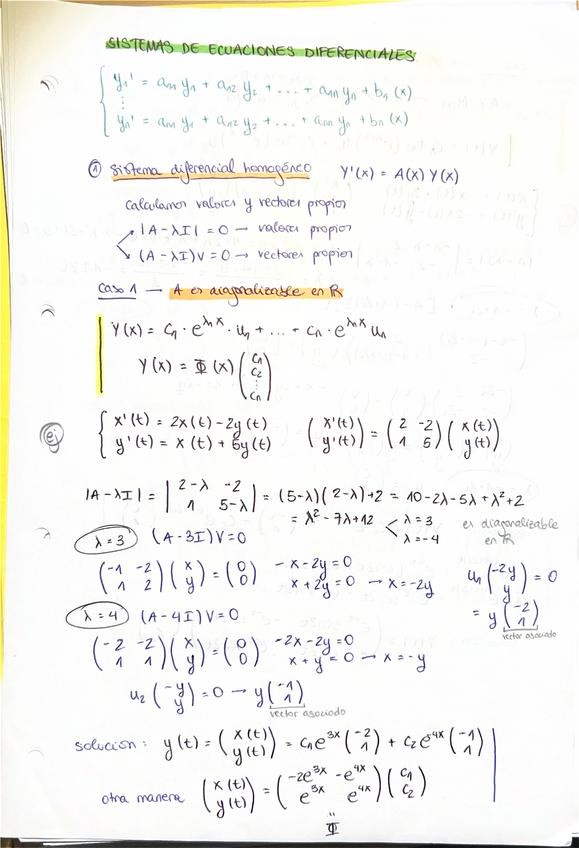 SISTEMAS DE ECUACIONES DIFERENCIALES
y₁' = a₁₁ y₁ + a₁₂ y₂ + ... + a₁ₙ yₙ + b₁ (x)
⋮
yₙ' = aₙₙ y₁ + aₙ₂ y₂ + ... + aₙₙ yₙ + bₙ (x)
① Sistema diferencial homogéneo Y'(x) = A(x) Y(x)
calculamos valores y vectores propios
|A - λI| = 0 → valores propios
(A - λI)V = 0 → vectores propios
Caso 1 → A es diagonalizable en ℝ
Y(x) = C₁ · e^λ₁x · u₁ + ... + Cₙ · e^λₙx uₙ
Y(x) = Φ(x) (C₁ C₂ ⋮ Cₙ)
ej
x'(t) = 2x(t) - 2y(t) (x'(t) y'(t)) = (2 -2 1 5) (x(t) y(t))
y'(t) = x(t) + 5y(t)
|A - λI| = |2-λ -2 1 5-λ| = (5-λ)(2-λ)+2 = 10-2λ-5λ+λ²+2
= λ² - 7λ + 12 < λ = 3 λ = -4 es diagonalizable en ℝ
λ = 3 (A - 3I) V = 0
(-1 -2 1 2) (x y) = (0 0) -x - 2y = 0 u₁ (-2y y) = 0
x + 2y = 0 → x = -2y = y (-2 1)
vector asociado
λ = 4 (A - 4I) V = 0
(-2 -2 1 1) (x y) = (0 0) -2x - 2y = 0
x + y = 0 → x = -y
u₂ (-y y) = 0 → y (-1 1)
vector asociado
solución: y(t) = (x(t) y(t)) = C₁e^3x (-2 1) + C₂e^4x (-1 1)
otra manera (x(t) y(t)) = (-2e^3x -e^4x e^3x e^4x) (C₁ C₂)
"
Φ